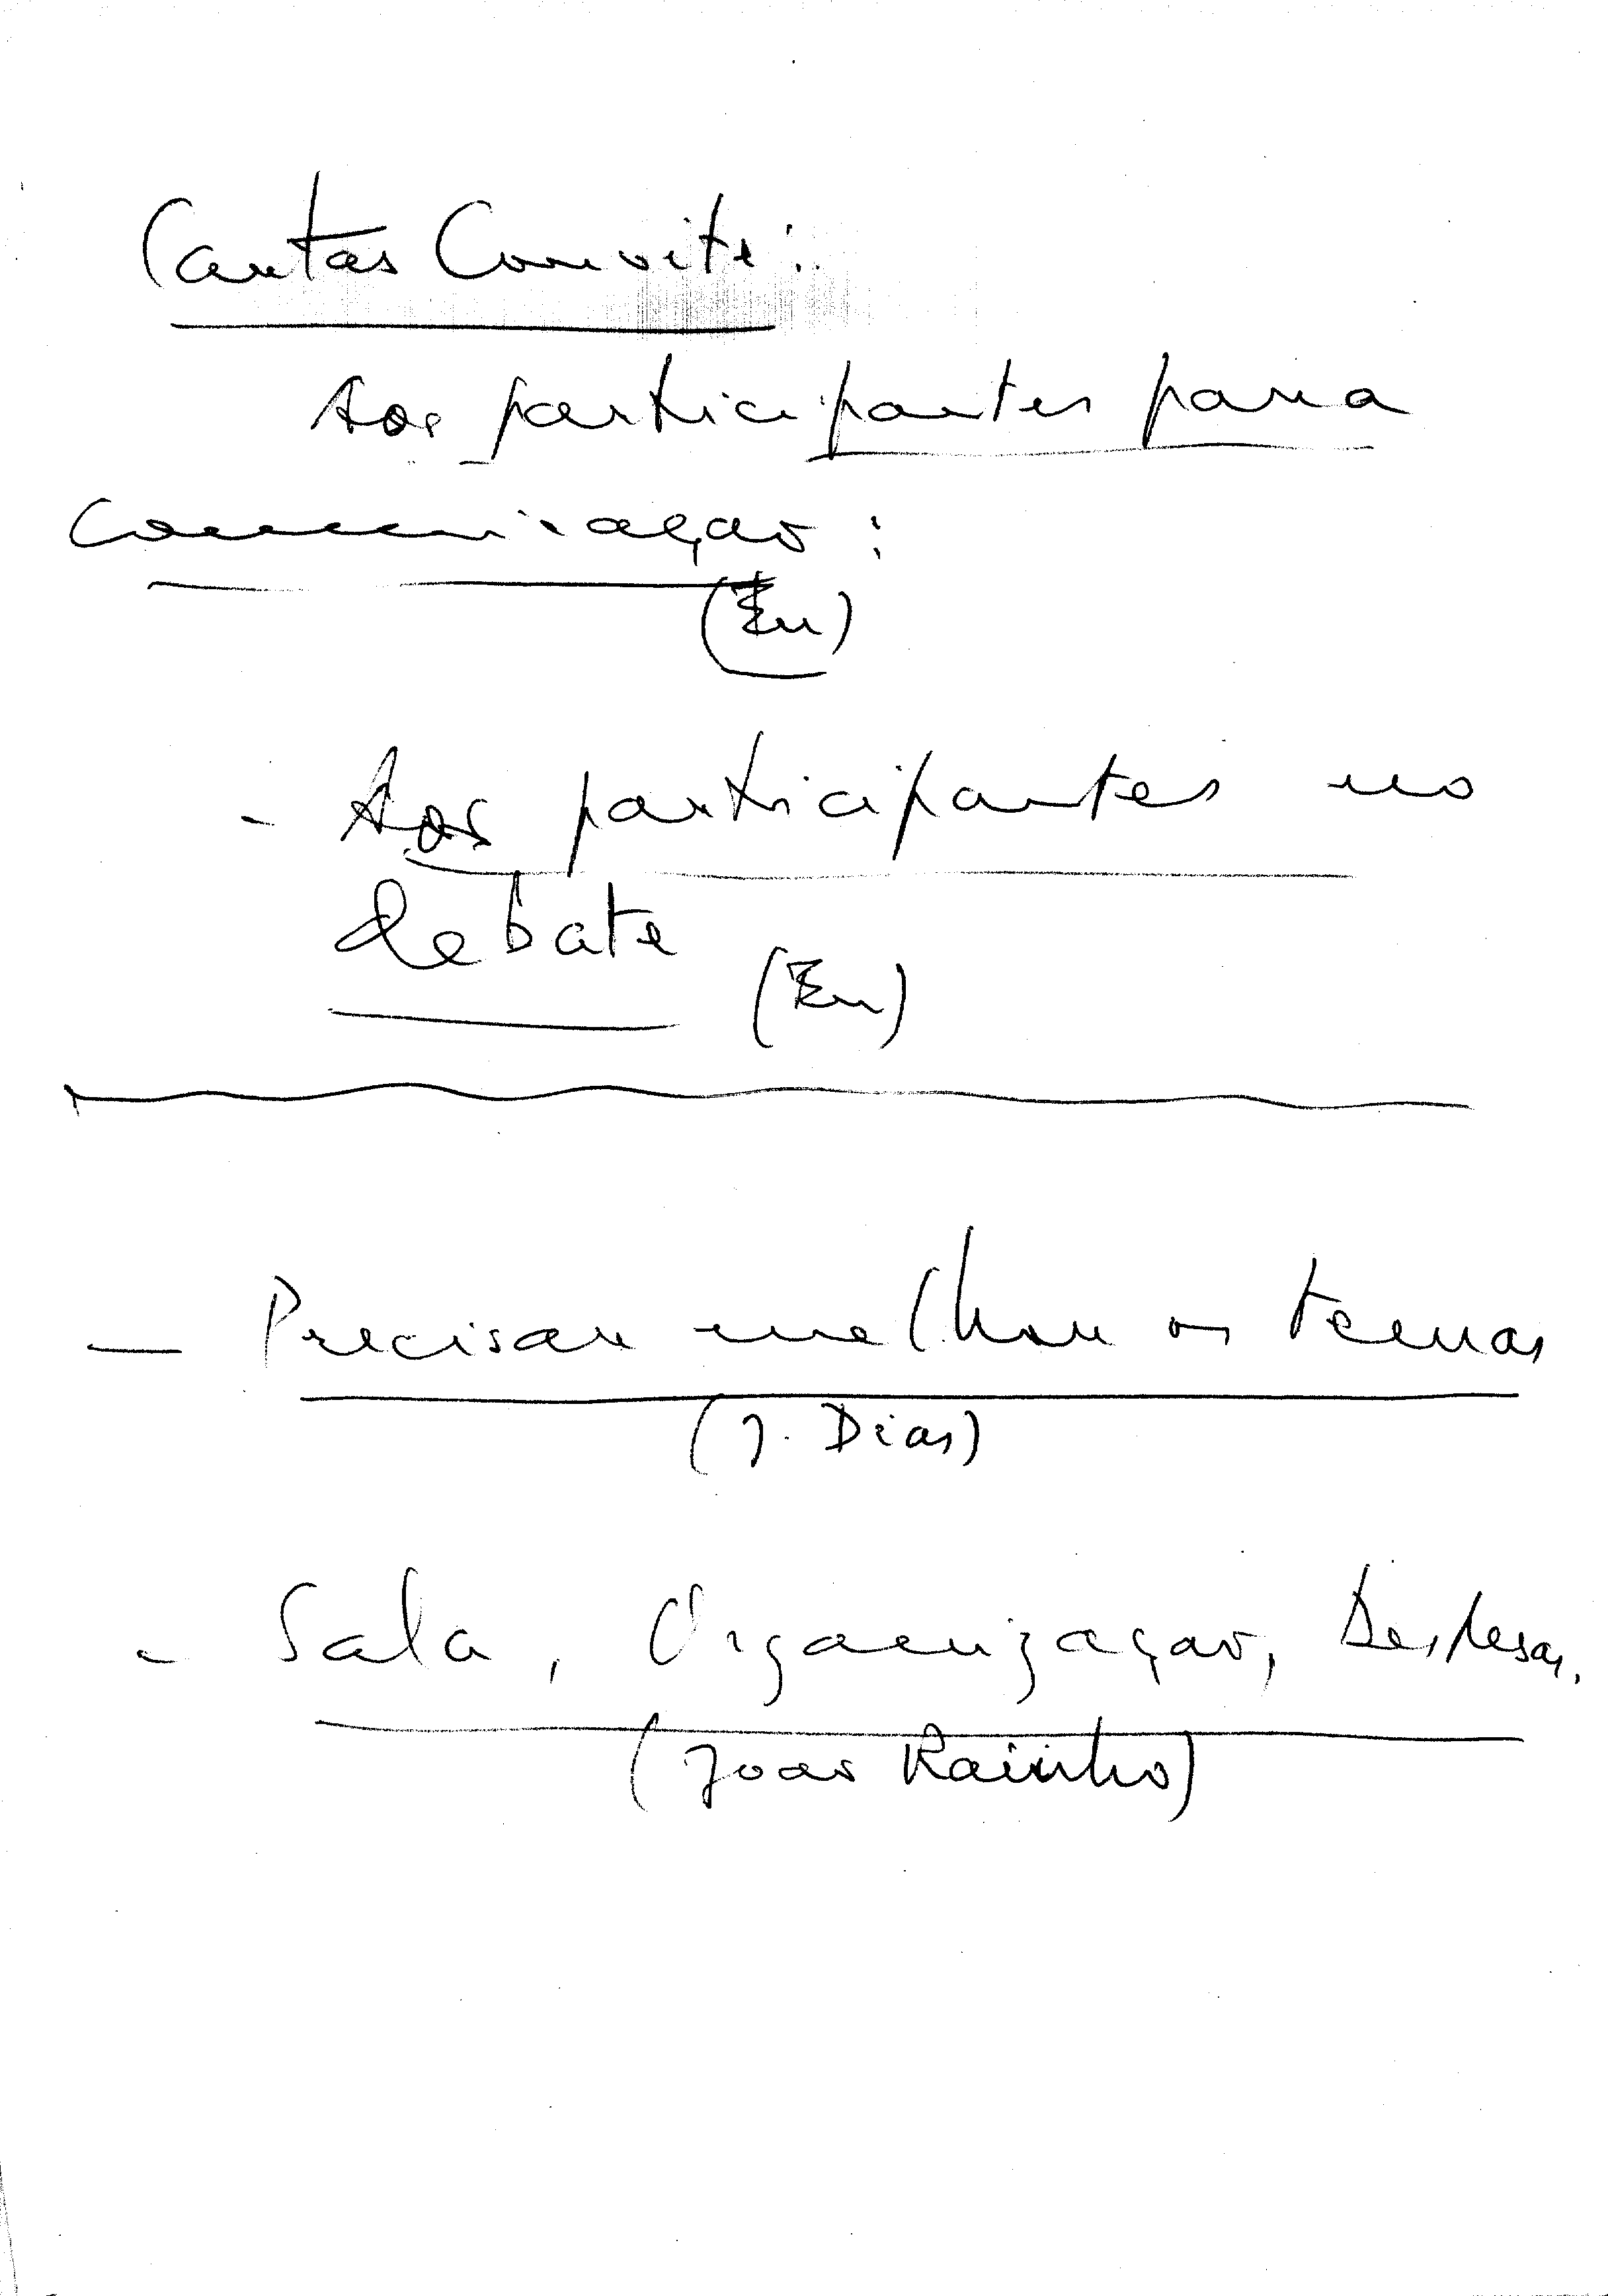 Cartas Convite:
Aos participantes para
Comunicação:
(Eu)
- Aos participantes no
debate
(Eu)
— Precisar melhor os temas
(J. Dias)
- Sala, Organização, Despesas.
(João Rainho)